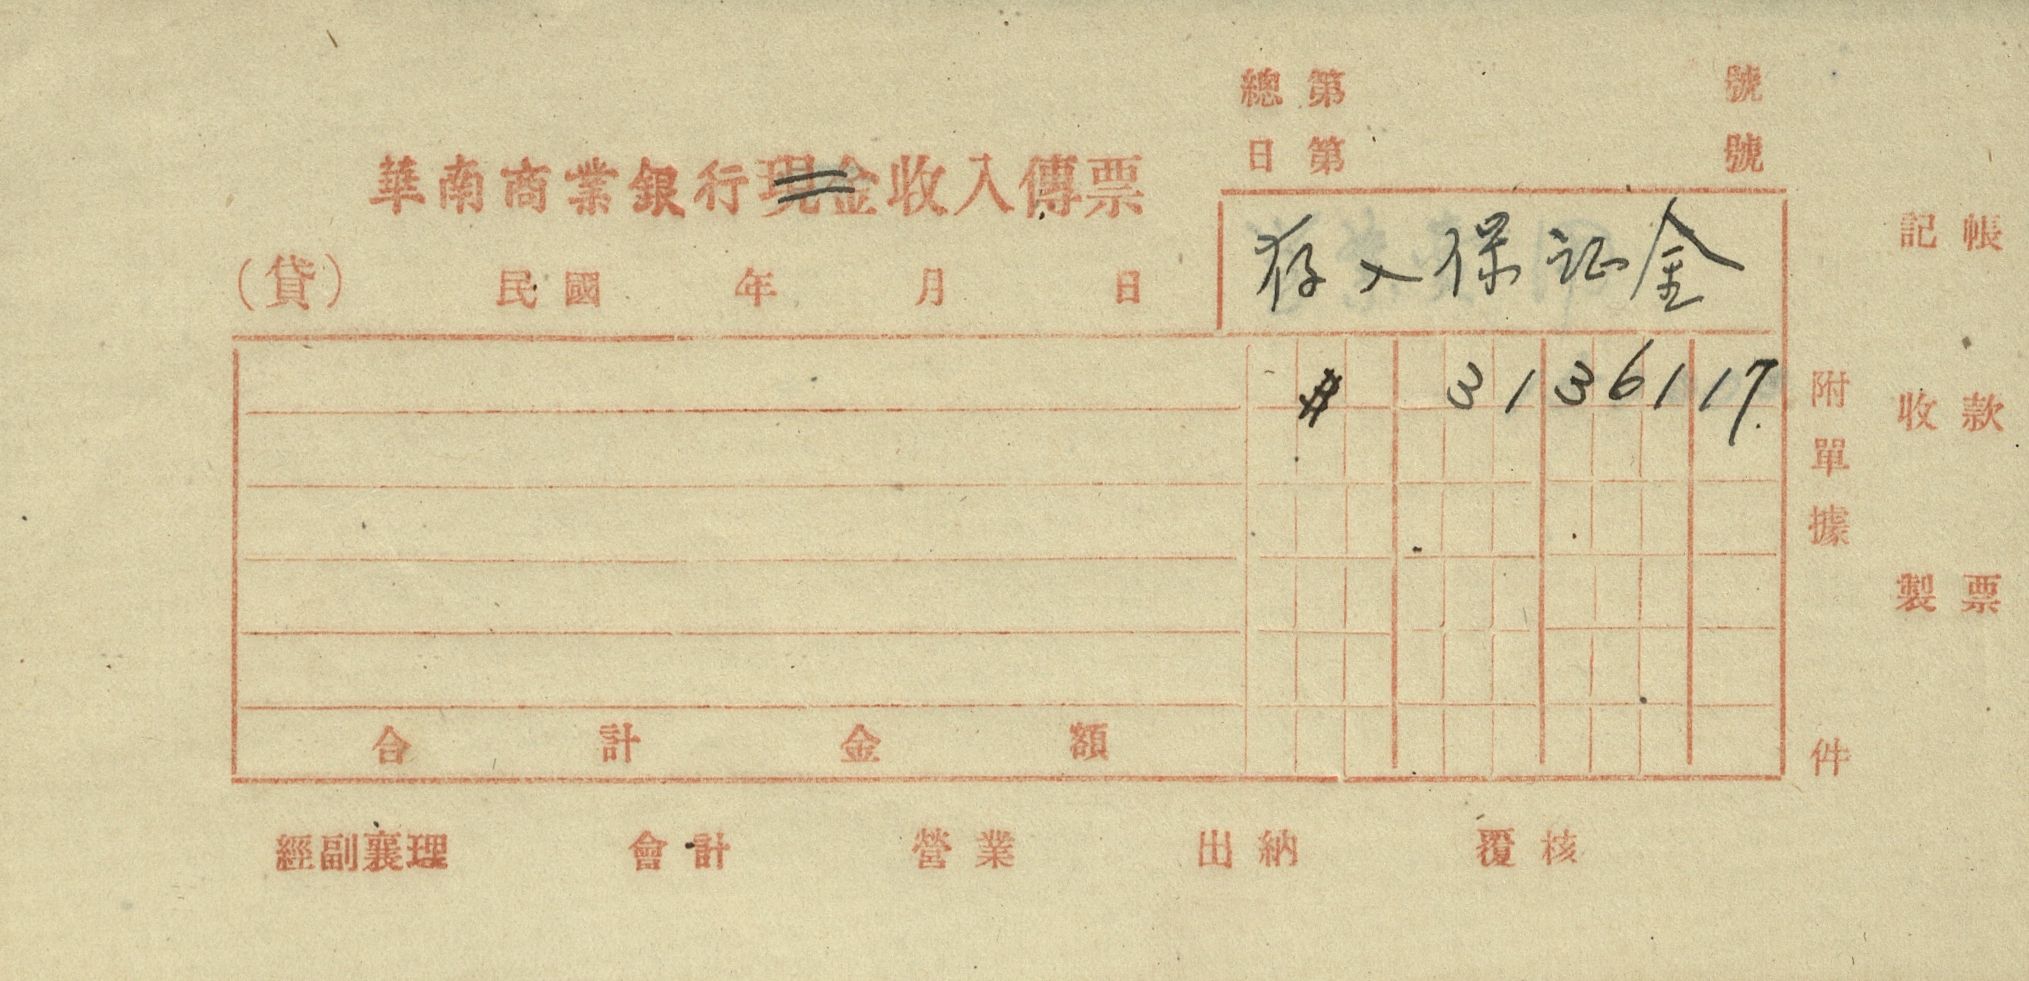 總第 號
日第 號
華南商業銀行現金收入傳票
(貸) 民國 年 月 日
存入保证金
# 31361 17
合計金額
附單據 件
記帳
收款
製票
經副襄理 會計 營業 出納 覆核